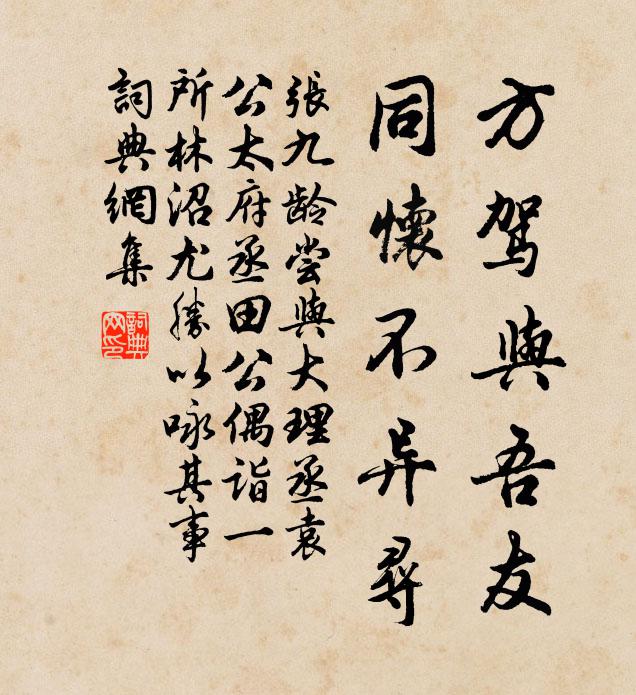 方驾與吾友
同懷不异尋
張九龄嘗與大理丞袁
公太府丞田公偶詣一
所林沼尤勝以咏其事
詞典網集
詞典網印